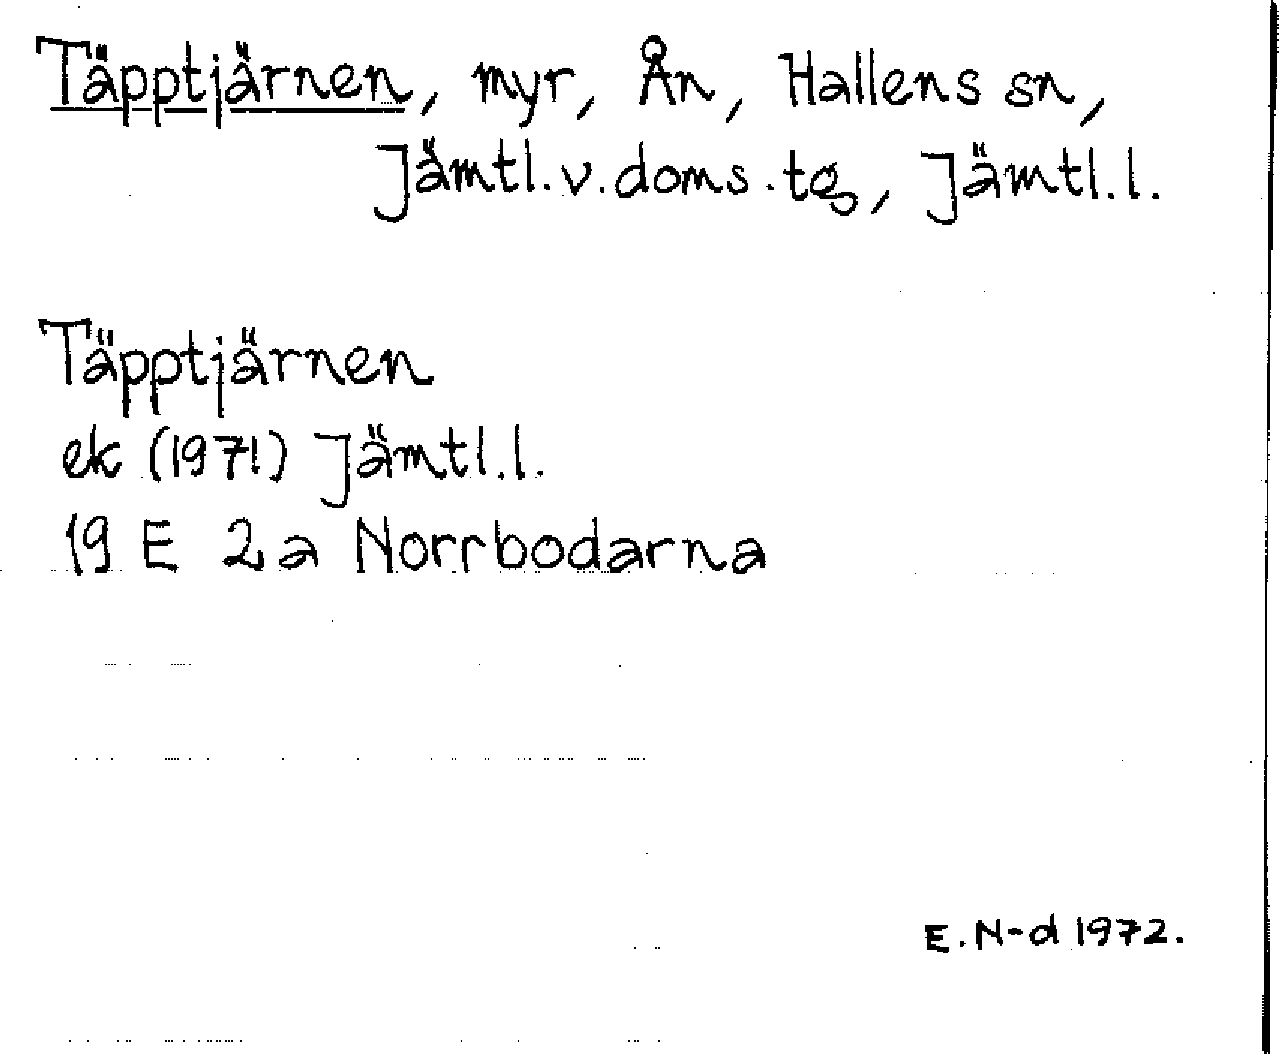 Täpptjärnen, myr, Ån, Hallens sn,
Jämtl.v.doms.tg, Jämtl.l.
Täpptjärnen
ek (1971) Jämtl.l.
19 E 2a Norrbodarna
E.N-d 1972.